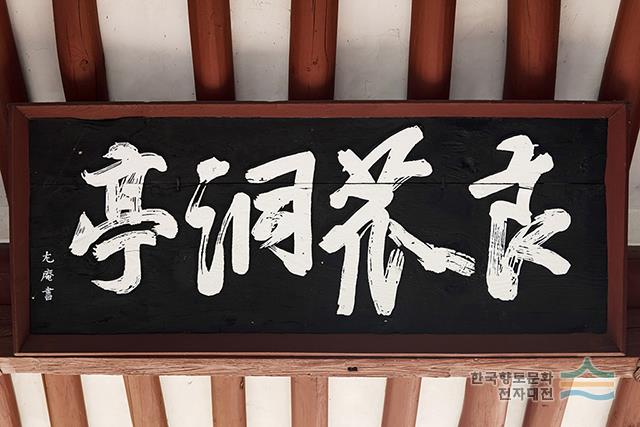 良苽洞亭
尤庵書
한국향토문화
전자대전